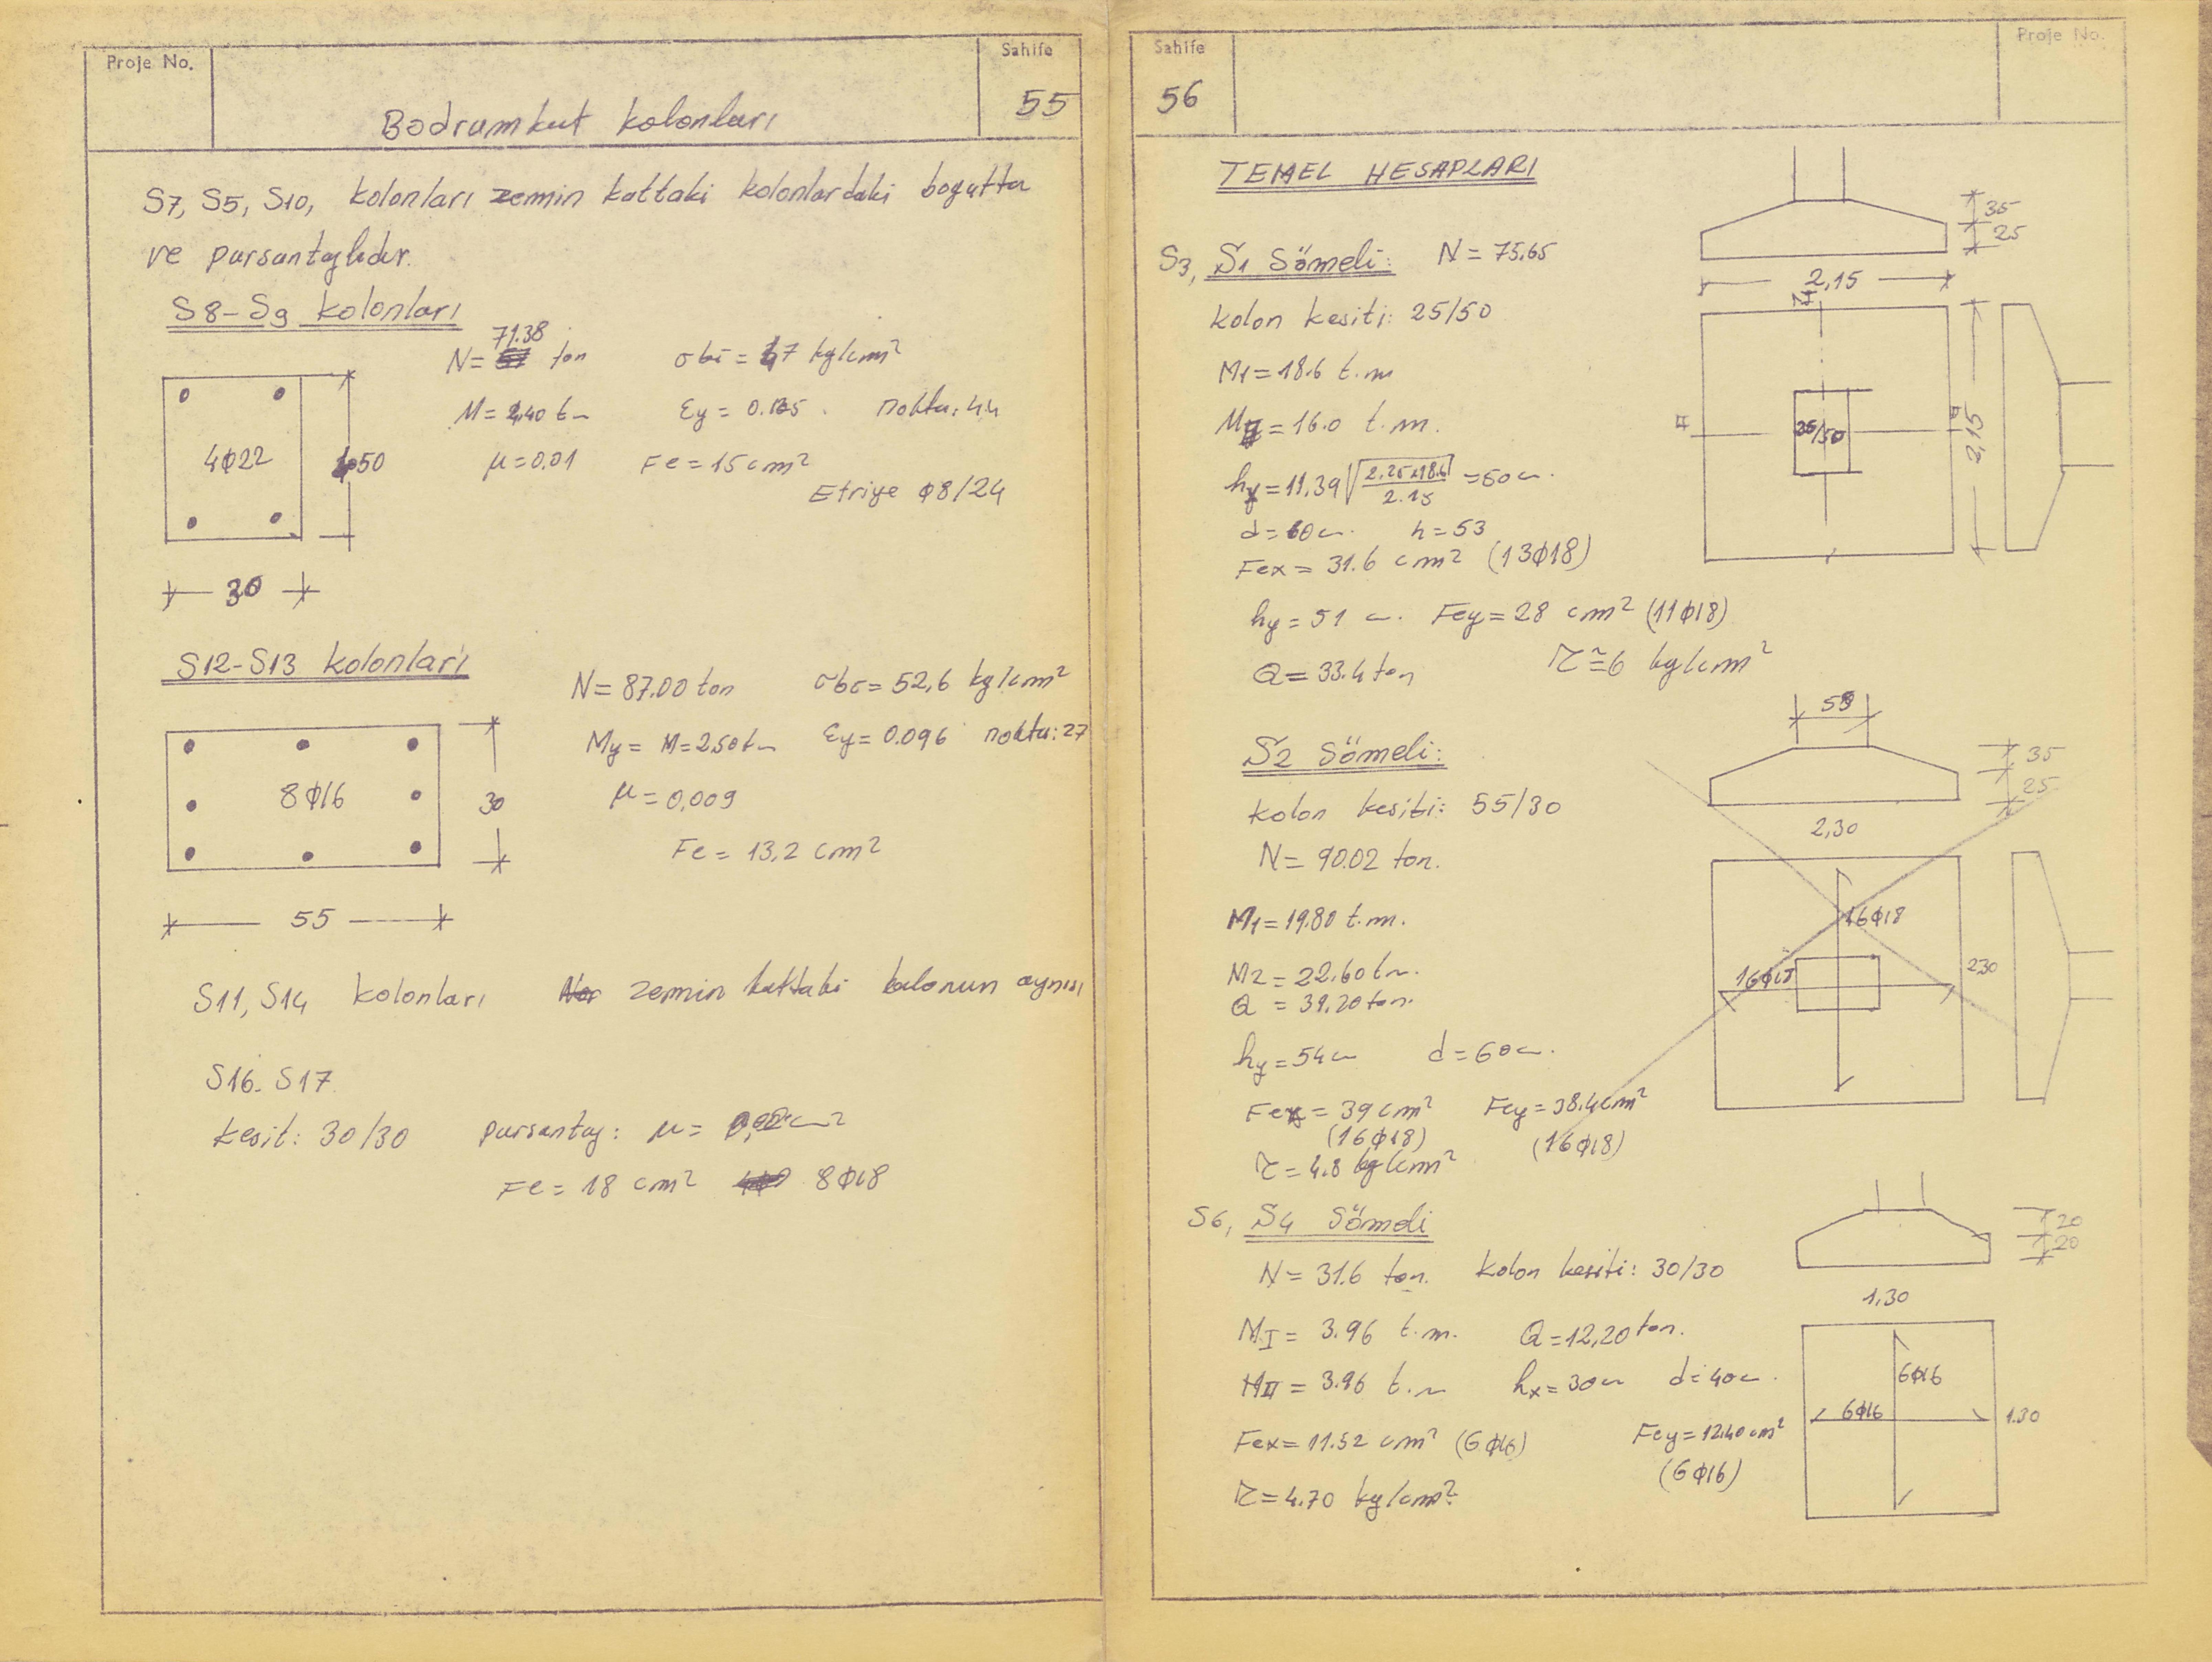 Proje No.
Bodrumkat kolonları
Sahife
55
S7, S5, S10, kolonları zemin kattaki kolonlardaki boyutta
ve pursantajlıdır.
S8-S9 kolonları
71.38
N= ton σbi = 47 kg/cm²
M= 2,40 tm εy = 0.125 . nokta: 44
μ=0.01 Fe=15cm²
Etriye ϕ8/24
4ϕ22
50
30
S12-S13 kolonları
N= 87.00 ton σbσ= 52,6 kg/cm²
My = M=2.50tm εy= 0.096 nokta:27
8ϕ16
30
μ=0,009
Fe= 13,2 cm²
55
S11, S14 kolonları zemin kattaki kolonun aynısı
S16- S17
kesit: 30/30 pursantaj: μ=
Fe= 18 cm² 8ϕ18
Sahife
56
Proje No.
TEMEL HESAPLARI
35
25
S3, S1 Sömeli: N= 75.65
2,15
kolon kesiti: 25/50
I
M1=18.6 t.m
MII=16.0 t.m.
II
25/50
II
2,15
hx=11.39√2.25x18.6/2.15 =50cm.
d=60cm. h=53
Fex= 31.6 cm² (13ϕ18)
hy=51 cm. Fey=28 cm² (11ϕ18)
Q= 33.4 ton τ≅6 kg/cm²
55
S2 Sömeli:
35
25
kolon kesiti: 55/30
2,30
N= 90.02 ton.
M1=19.80 t.m.
16ϕ18
M2=22.60tm.
16ϕ18
230
Q = 39.20ton.
hy=54cm d=60cm.
Fex= 39cm² Fey=38.4cm²
(16ϕ18) (16ϕ18)
τ=4.8 kg/cm²
S6, S4 Sömeli
20
20
N= 31.6 ton. kolon kesiti: 30/30
1,30
MI= 3.96 t.m. Q=12,20ton.
MII= 3.96 t.m hx=30cm d=40cm.
6ϕ16
6ϕ16
1.30
Fex=11.52 cm² (6ϕ16) Fey=12.40cm²
(6ϕ16)
τ=4.70 kg/cm²